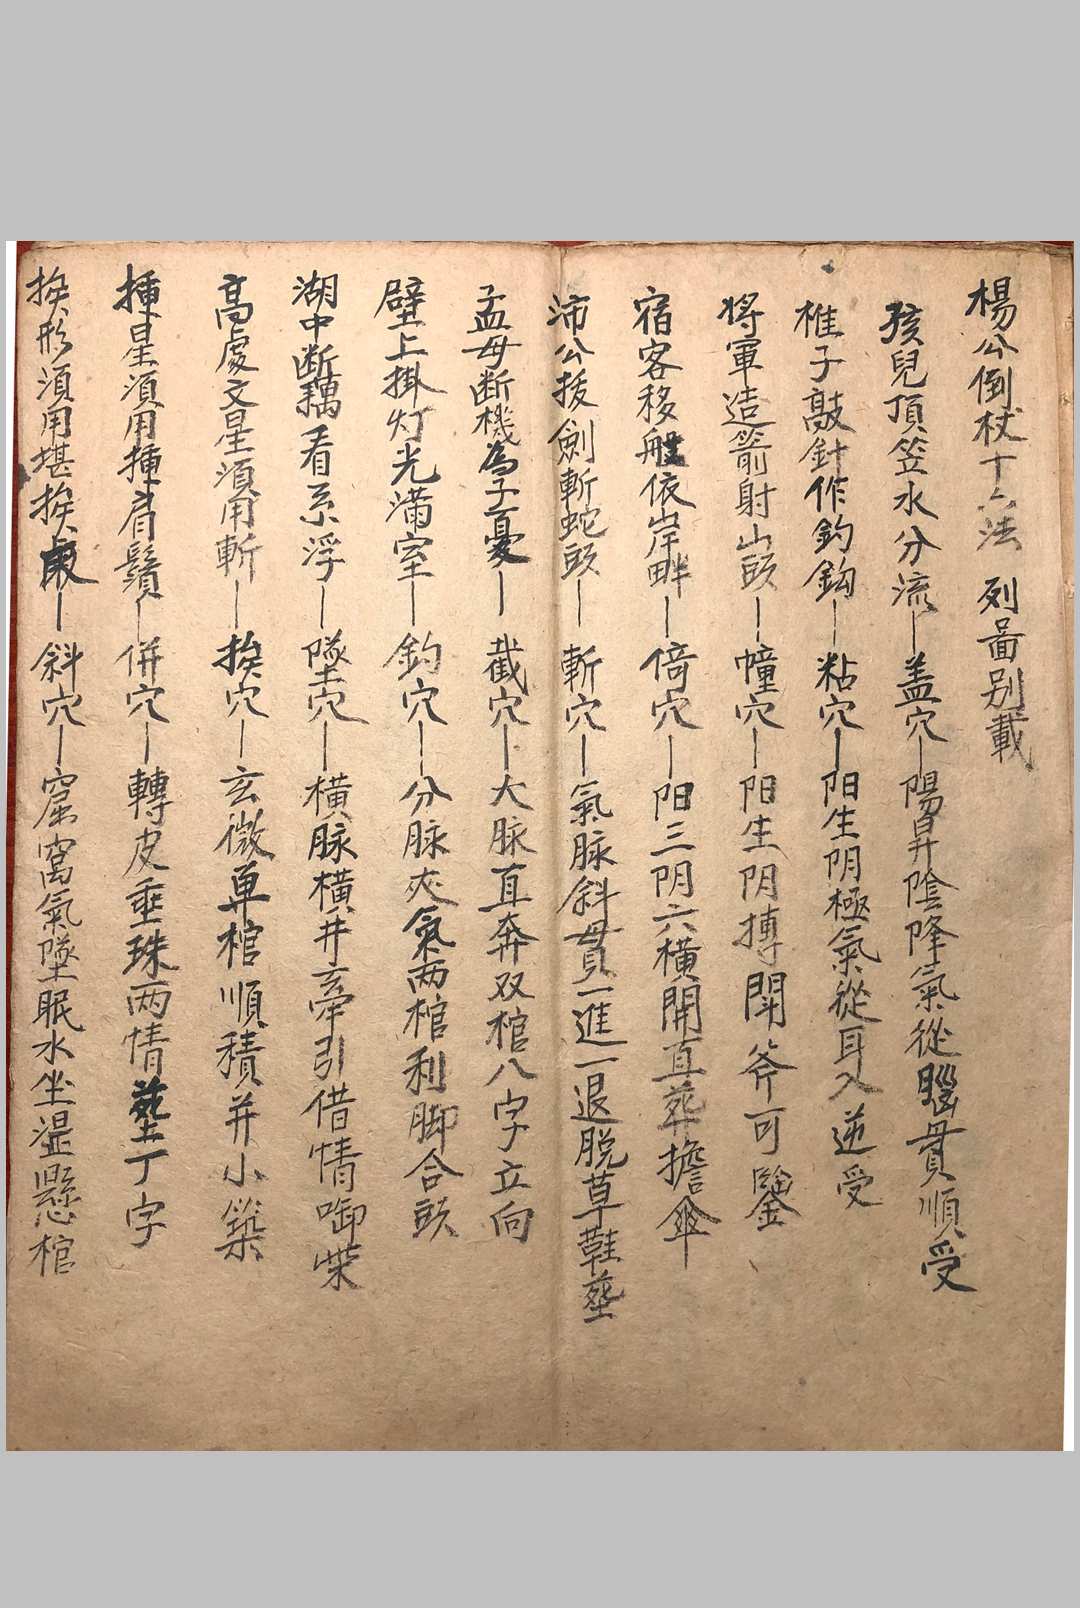 楊公倒杖十六法 列啚别載
孩兒頂笠水分流—盖穴—陽昇陰降氣從腦貫順受
椎子敲針作釣鈎—粘穴—阳生阴極氣從耳入逆受
将軍造箭射山頭—幢穴—阳生阴摶開斧可鑿
宿客移船依岸畔—倚穴—阳三阴六横開直葬擔傘
沛公拔劍斬蛇頭—斬穴—氣脉斜貫一進一退脱草鞋塟
孟母断機為子憂—截穴—大脉直奔双棺八字立向
壁上掛灯光满室—釣穴—分脉夾氣两棺利脚合頭
湖中断藕看系浮—墜穴—横脉横井牽引借情啣柴
高處文星湏用斬—挨穴—玄微单棺順積并小築
揰星湏用揰肩鬚—併穴—轉皮垂珠两情塟丁字
挨形湏用堪挨—斜穴—窟窩氣墜眠水坐湿懸棺